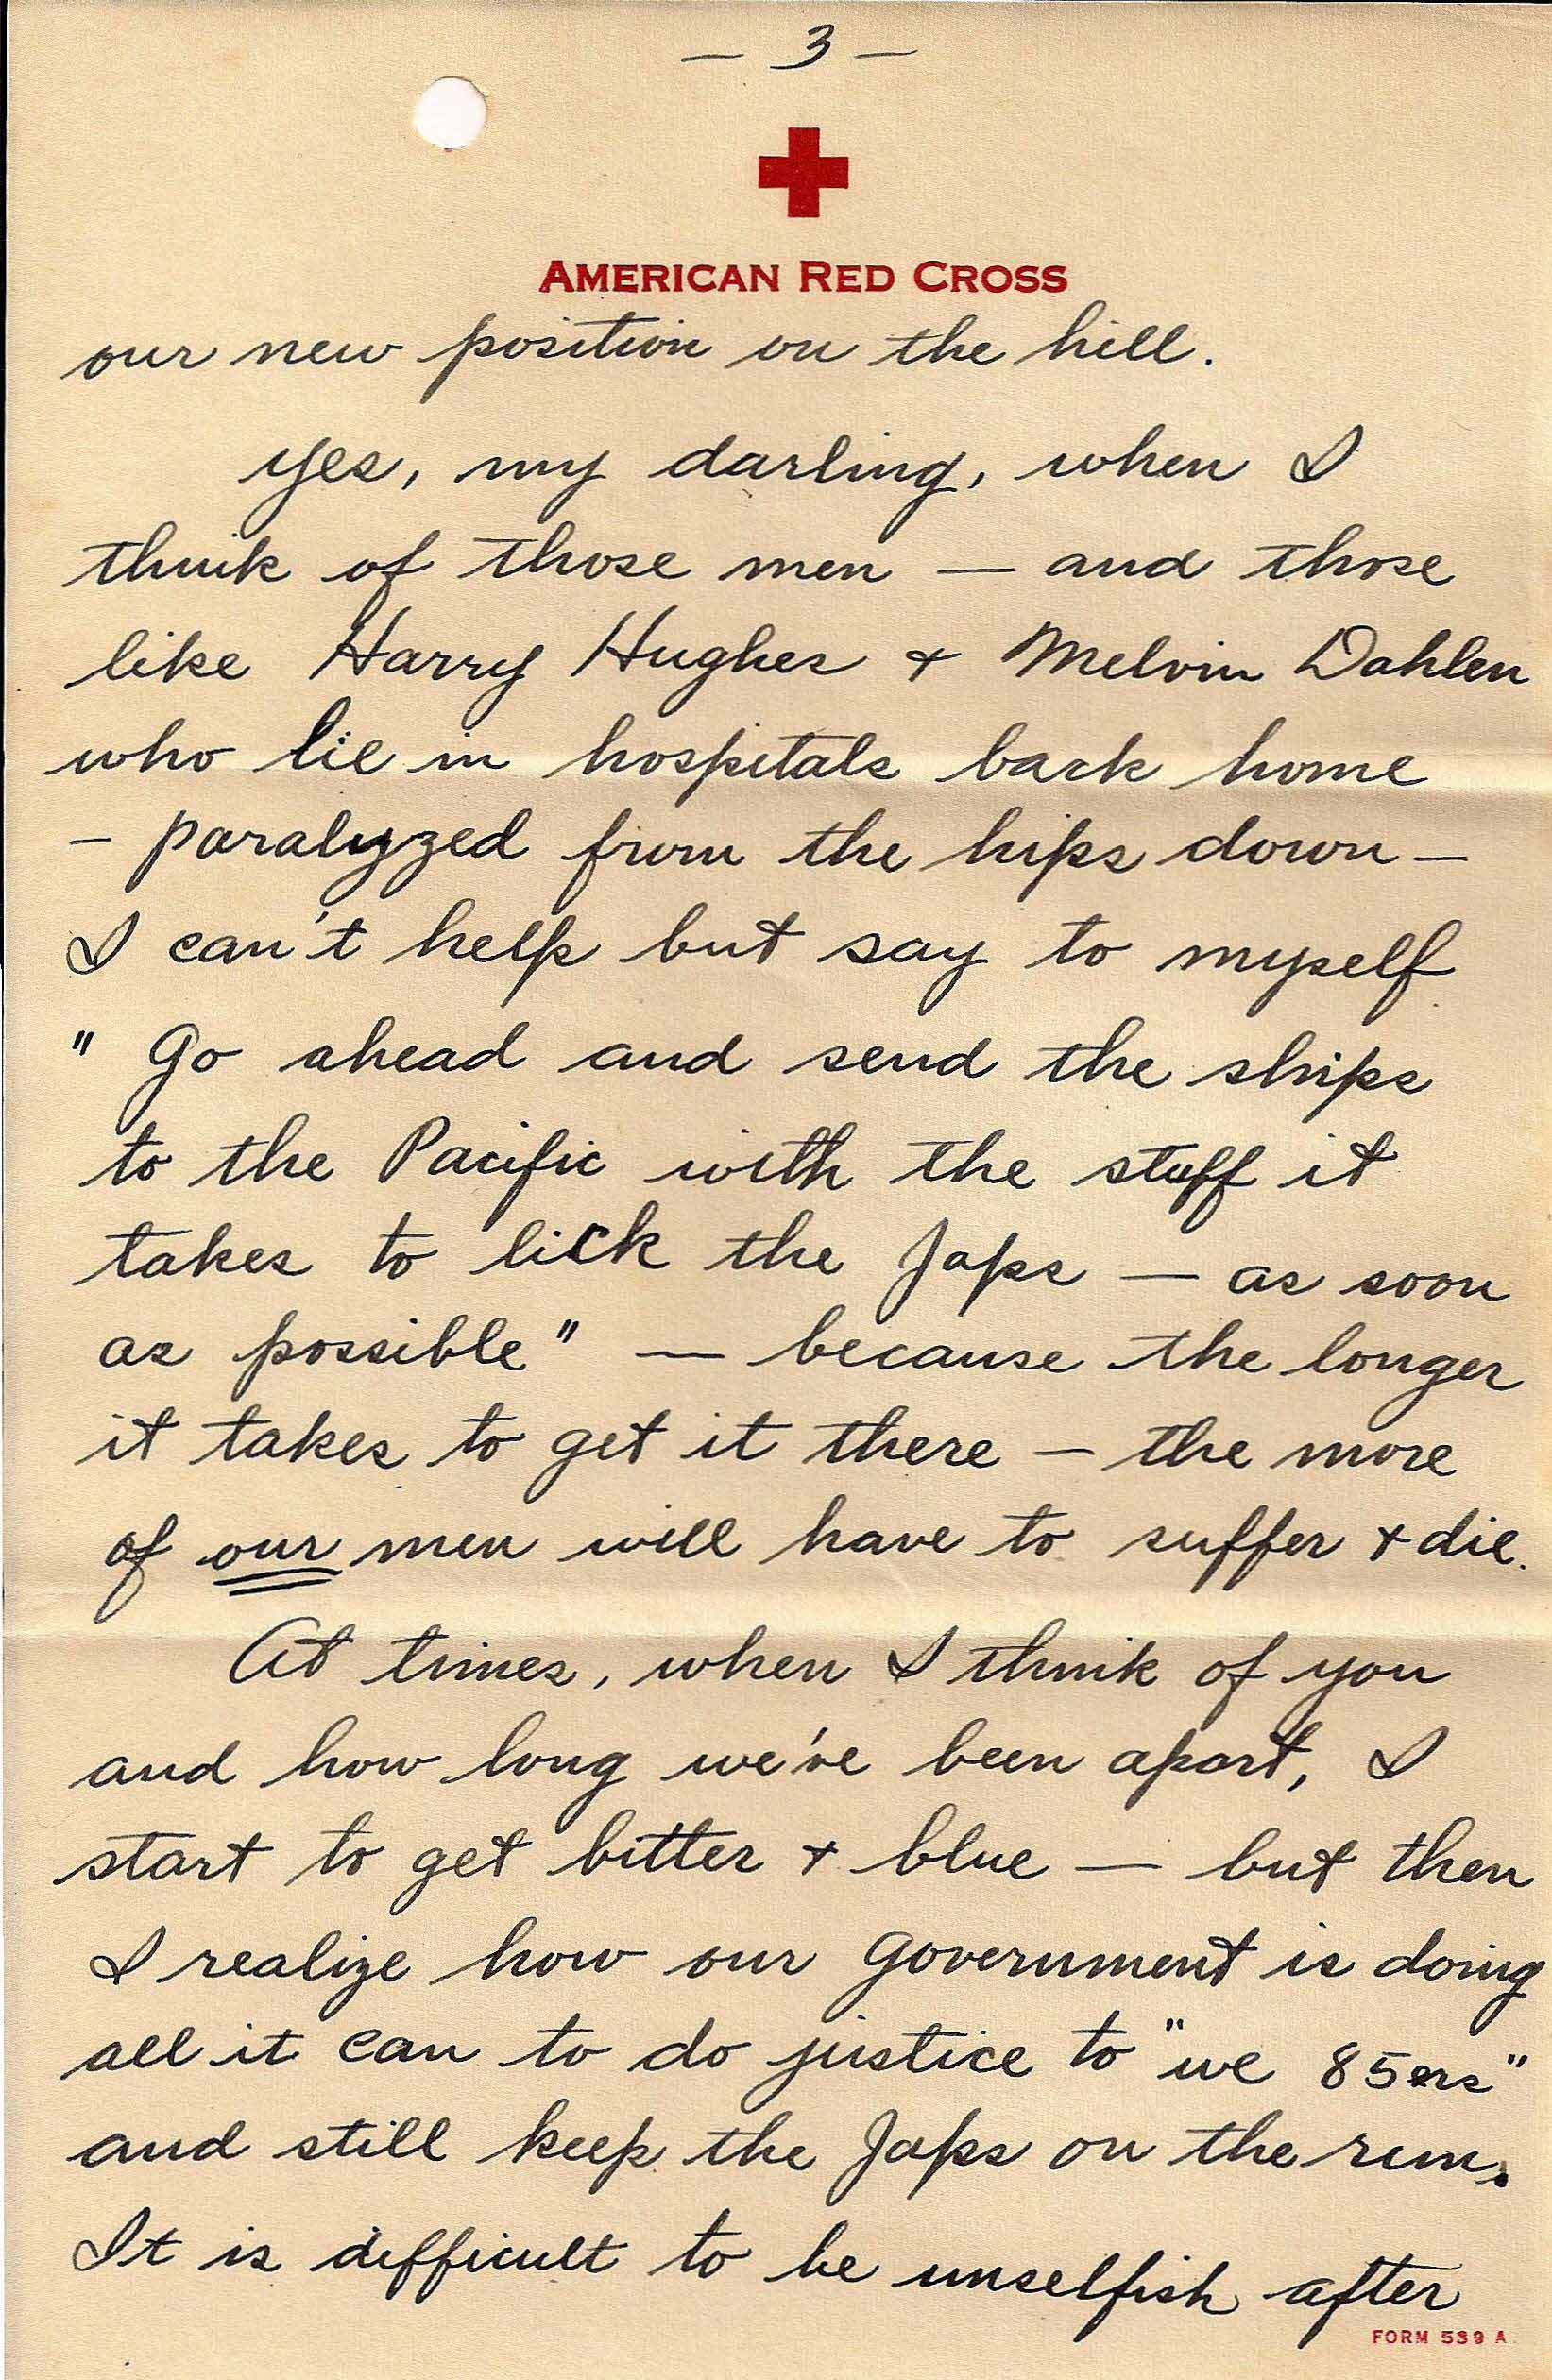 – 3 –
AMERICAN RED CROSS
our new position on the hill.
Yes, my darling, when I
think of those men — and those
like Harry Hughes + Melvin Dahlen
who lie in hospitals back home
– paralyzed from the hips down –
I can't help but say to myself
" Go ahead and send the ships
to the Pacific with the stuff it
takes to lick the Japs — as soon
as possible" — because the longer
it takes to get it there – the more
of our men will have to suffer + die.
At times, when I think of you
and how long we've been apart, I
start to get bitter + blue — but then
I realize how our Government is doing
all it can to do justice to "we 85ers"
and still keep the Japs on the run.
It is difficult to be unselfish after
FORM 539 A